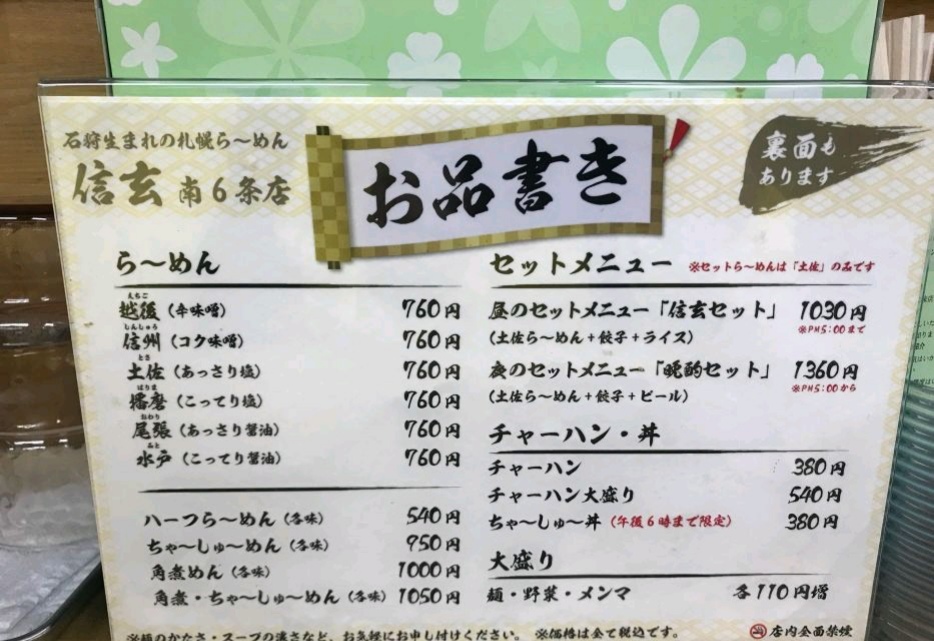 石狩生まれの札幌ら〜めん
信玄 南6条店
お品書き
裏面も
あります
ら〜めん
越後（辛味噌） 760円
えちご
信州（コク味噌） 760円
しんしゅう
土佐（あっさり塩） 760円
とさ
播磨（こってり塩） 760円
はりま
尾張（あっさり醤油） 760円
おわり
水戸（こってり醤油） 760円
みと
ハーフら〜めん（各味） 540円
ちゃ〜しゅ〜めん（各味） 950円
角煮めん（各味） 1000円
角煮・ちゃ〜しゅ〜めん（各味） 1050円
セットメニュー ※セットら〜めんは「土佐」の品です
昼のセットメニュー「信玄セット」 1030円
（土佐ら〜めん＋餃子＋ライス） ※PM5:00まで
夜のセットメニュー「晩酌セット」 1360円
（土佐ら〜めん＋餃子＋ビール） ※PM5:00から
チャーハン・丼
チャーハン 380円
チャーハン大盛り 540円
ちゃ〜しゅ〜丼（午後6時まで限定） 380円
大盛り
麺・野菜・メンマ 各110円増
※麺のかたさ・スープの濃さなど、お気軽にお申し付けください。 ※価格は全て税込です。
店内全面禁煙